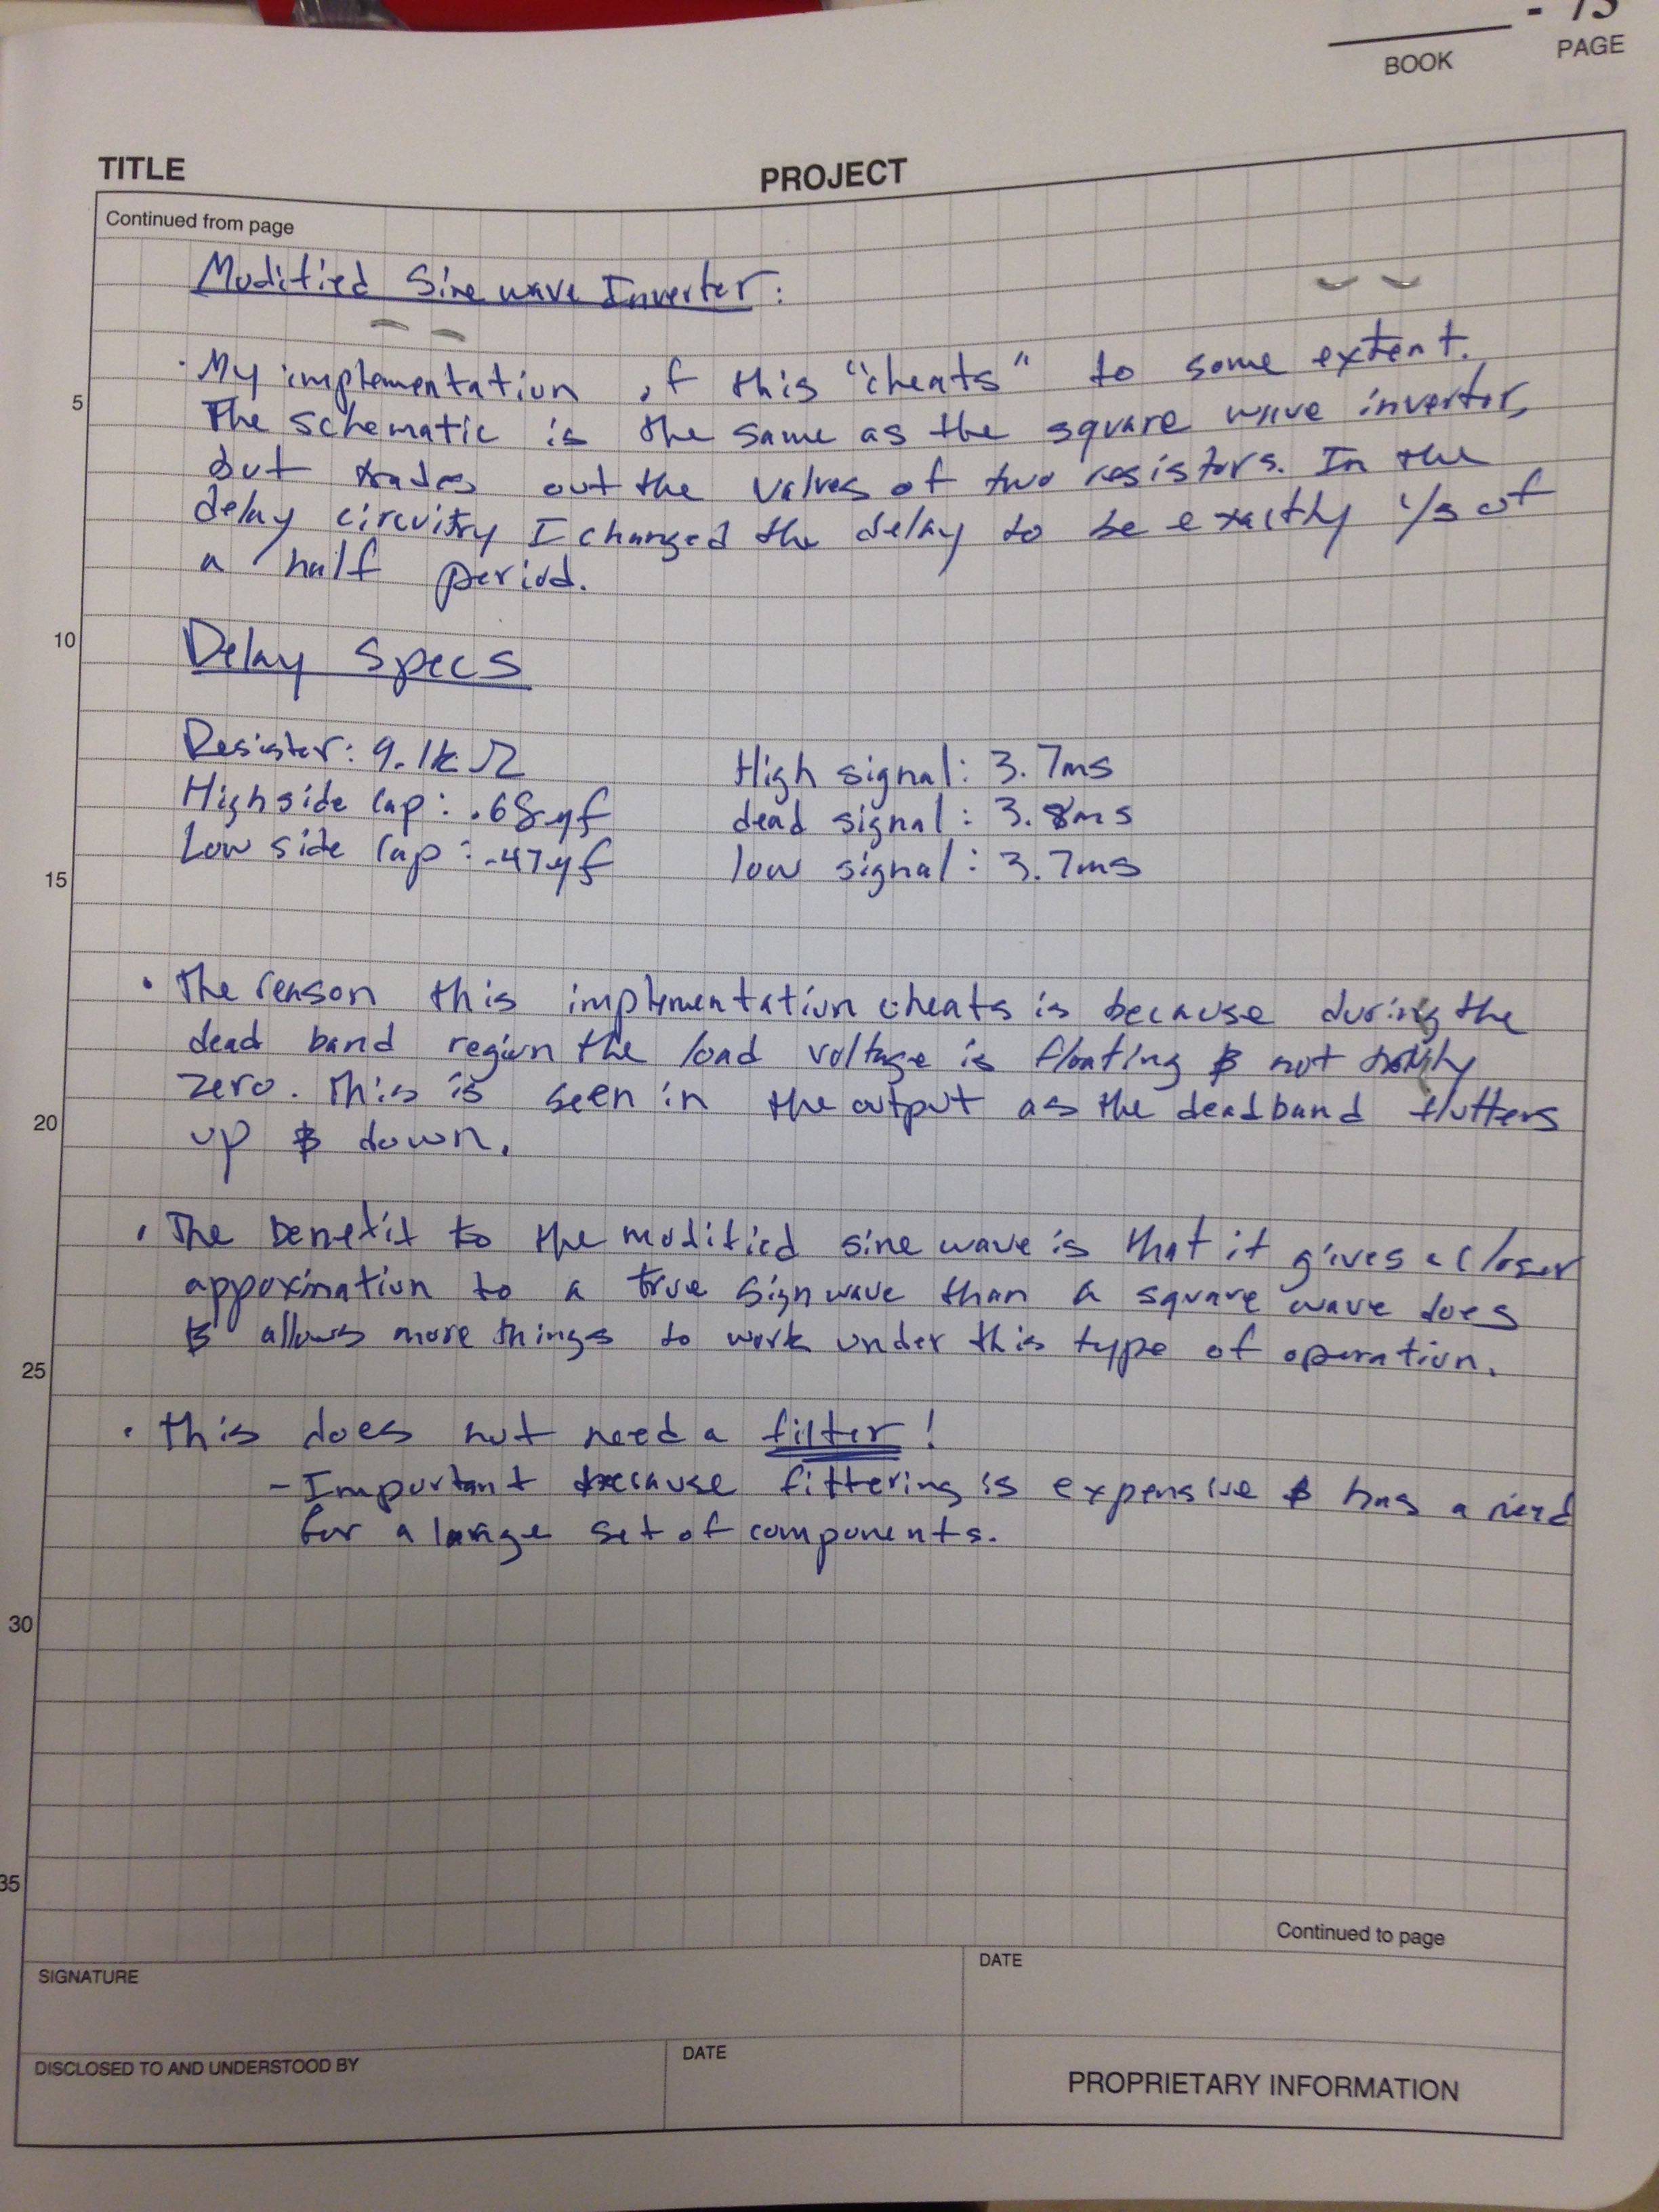 - 73
BOOK
PAGE
TITLE
PROJECT
Continued from page
Modified Sine wave Inverter:
· My implementation of this "cheats" to some extent.
The schematic is the same as the square wave inverter,
but trades out the values of two resistors. In the
delay circuitry I changed the delay to be exactly 1/3 of
a half period.
Delay Specs
Resister: 9.1k Ω
High side Cap: .68 μf
Low side Cap: .47 μf
High signal: 3.7ms
dead signal: 3.8ms
low signal: 3.7ms
· The reason this implementation cheats is because during the
dead band region the load voltage is floating & not
zero. This is seen in the output as the deadband flutters
up & down.
· The benefit to the modified sine wave is that it gives a closer
appoximation to a true sign wave than a square wave does
& allows more things to work under this type of operation.
· This does not need a filter!
- Important because filtering is expensive & has a need
for a large set of components.
5
10
15
20
25
30
35
Continued to page
SIGNATURE
DATE
DISCLOSED TO AND UNDERSTOOD BY
DATE
PROPRIETARY INFORMATION